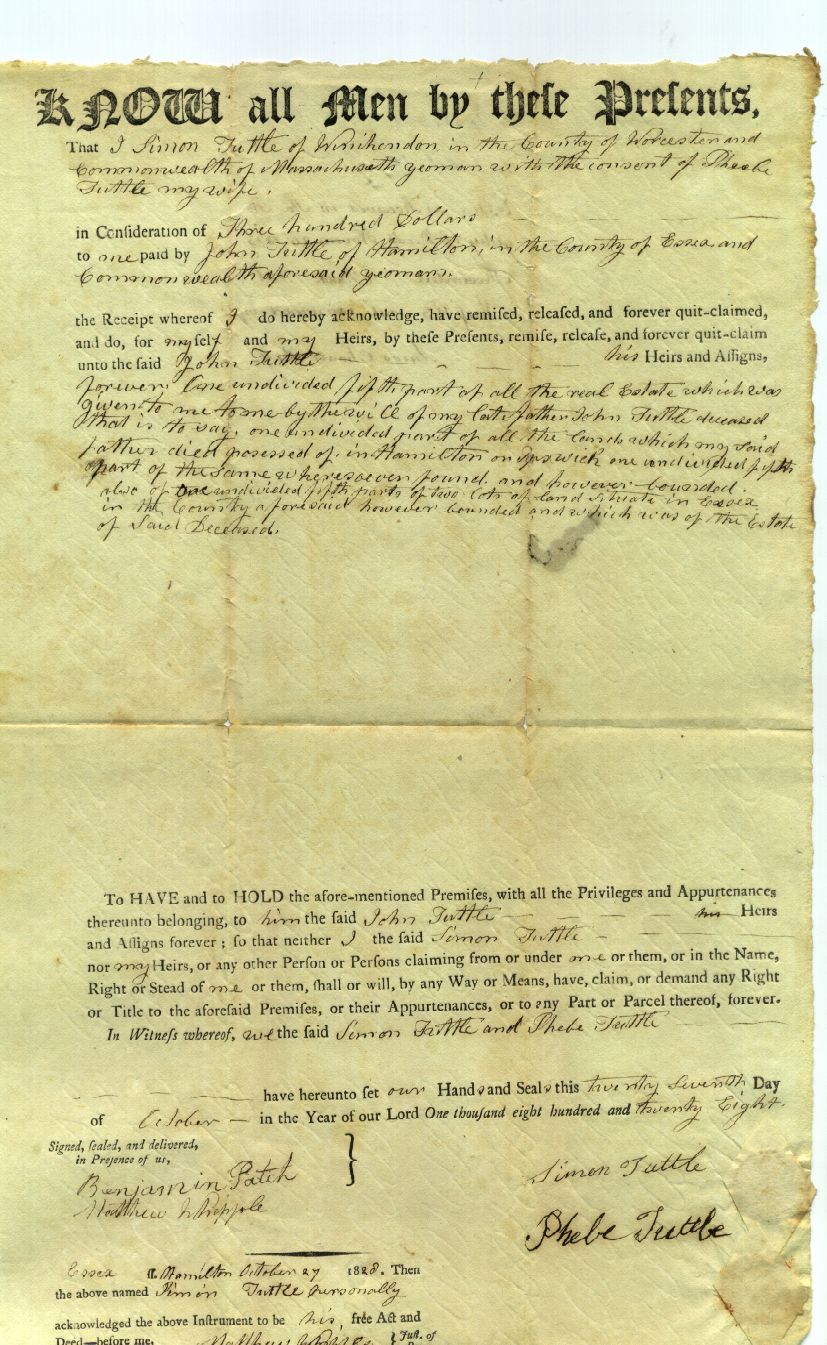 KNOW all Men by theſe Preſents,
That I Simon Tuttle of Winchendon in the County of Worcester and
Commonwealth of Massachusetts yeoman with the consent of Phebe
Tuttle my wife.
in Conſideration of Three hundred Dollars
to me paid by John Tuttle of Hamilton, in the County of Essex and
Commonwealth aforesaid yeoman.
the Receipt whereof I do hereby acknowledge, have remiſed, releaſed, and forever quit-claimed,
and do, for myself and my Heirs, by theſe Preſents, remiſe, releaſe, and forever quit-claim
unto the ſaid John Tuttle his Heirs and Aſſigns,
forever. One undivided fifth part of all the real Estate which was
given to me to me by the will of my late father John Tuttle deceased
that is to say, one undivided part of all the lands which my said
father died posessed of in Hamilton or Ipswich one undivided fifth
part of the same wheresoever found and however bounded.
also of one undivided fifth parts of two lots of land situate in Essex
in the County aforesaid however bounded and which was of the Estate
of Said Deceased.
To HAVE and to HOLD the afore-mentioned Premiſes, with all the Privileges and Appurtenances
thereunto belonging, to him the ſaid John Tuttle his Heirs
and Aſſigns forever; ſo that neither I the ſaid Simon Tuttle
nor my Heirs, or any other Perſon or Perſons claiming from or under me or them, or in the Name,
Right or Stead of me or them, ſhall or will, by any Way or Means, have, claim, or demand any Right
or Title to the aforeſaid Premiſes, or their Appurtenances, or to any Part or Parcel thereof, forever.
In Witneſs whereof, we the ſaid Simon Tuttle and Phebe Tuttle
have hereunto ſet our Hands and Seals this twenty Seventh Day
of October in the Year of our Lord One thouſand eight hundred and twenty Eight.
Signed, ſealed, and delivered,
in Preſence of us,
Benjamin Patch
Matthew Whipple
Simon Tuttle
Phebe Tuttle
Essex ſſ. Hamilton October 27 1828. Then
the above named Simon Tuttle personally
acknowledged the above Inſtrument to be his free Act and
Deed—before me, Matthew Whipple } Juſt. of